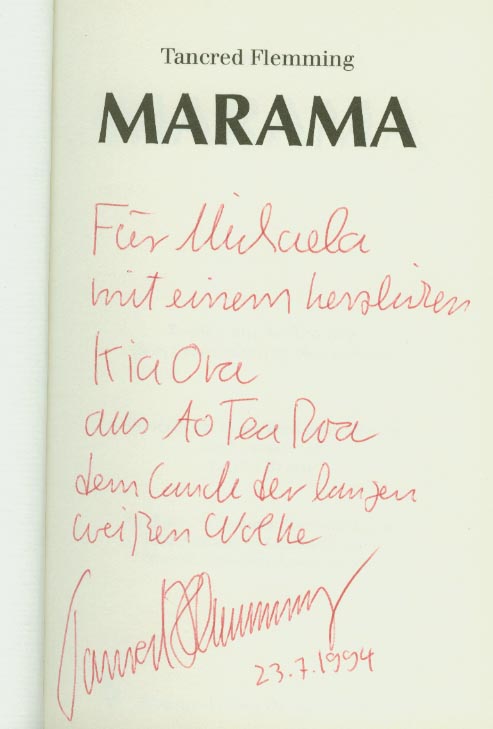 Tancred Flemming
MARAMA
Für Michaela
mit einem herzlichen
Kia Ora
aus Ao Tea Roa
dem Lande der langen
weißen Wolke
Tancred Flemming
23.7.1994